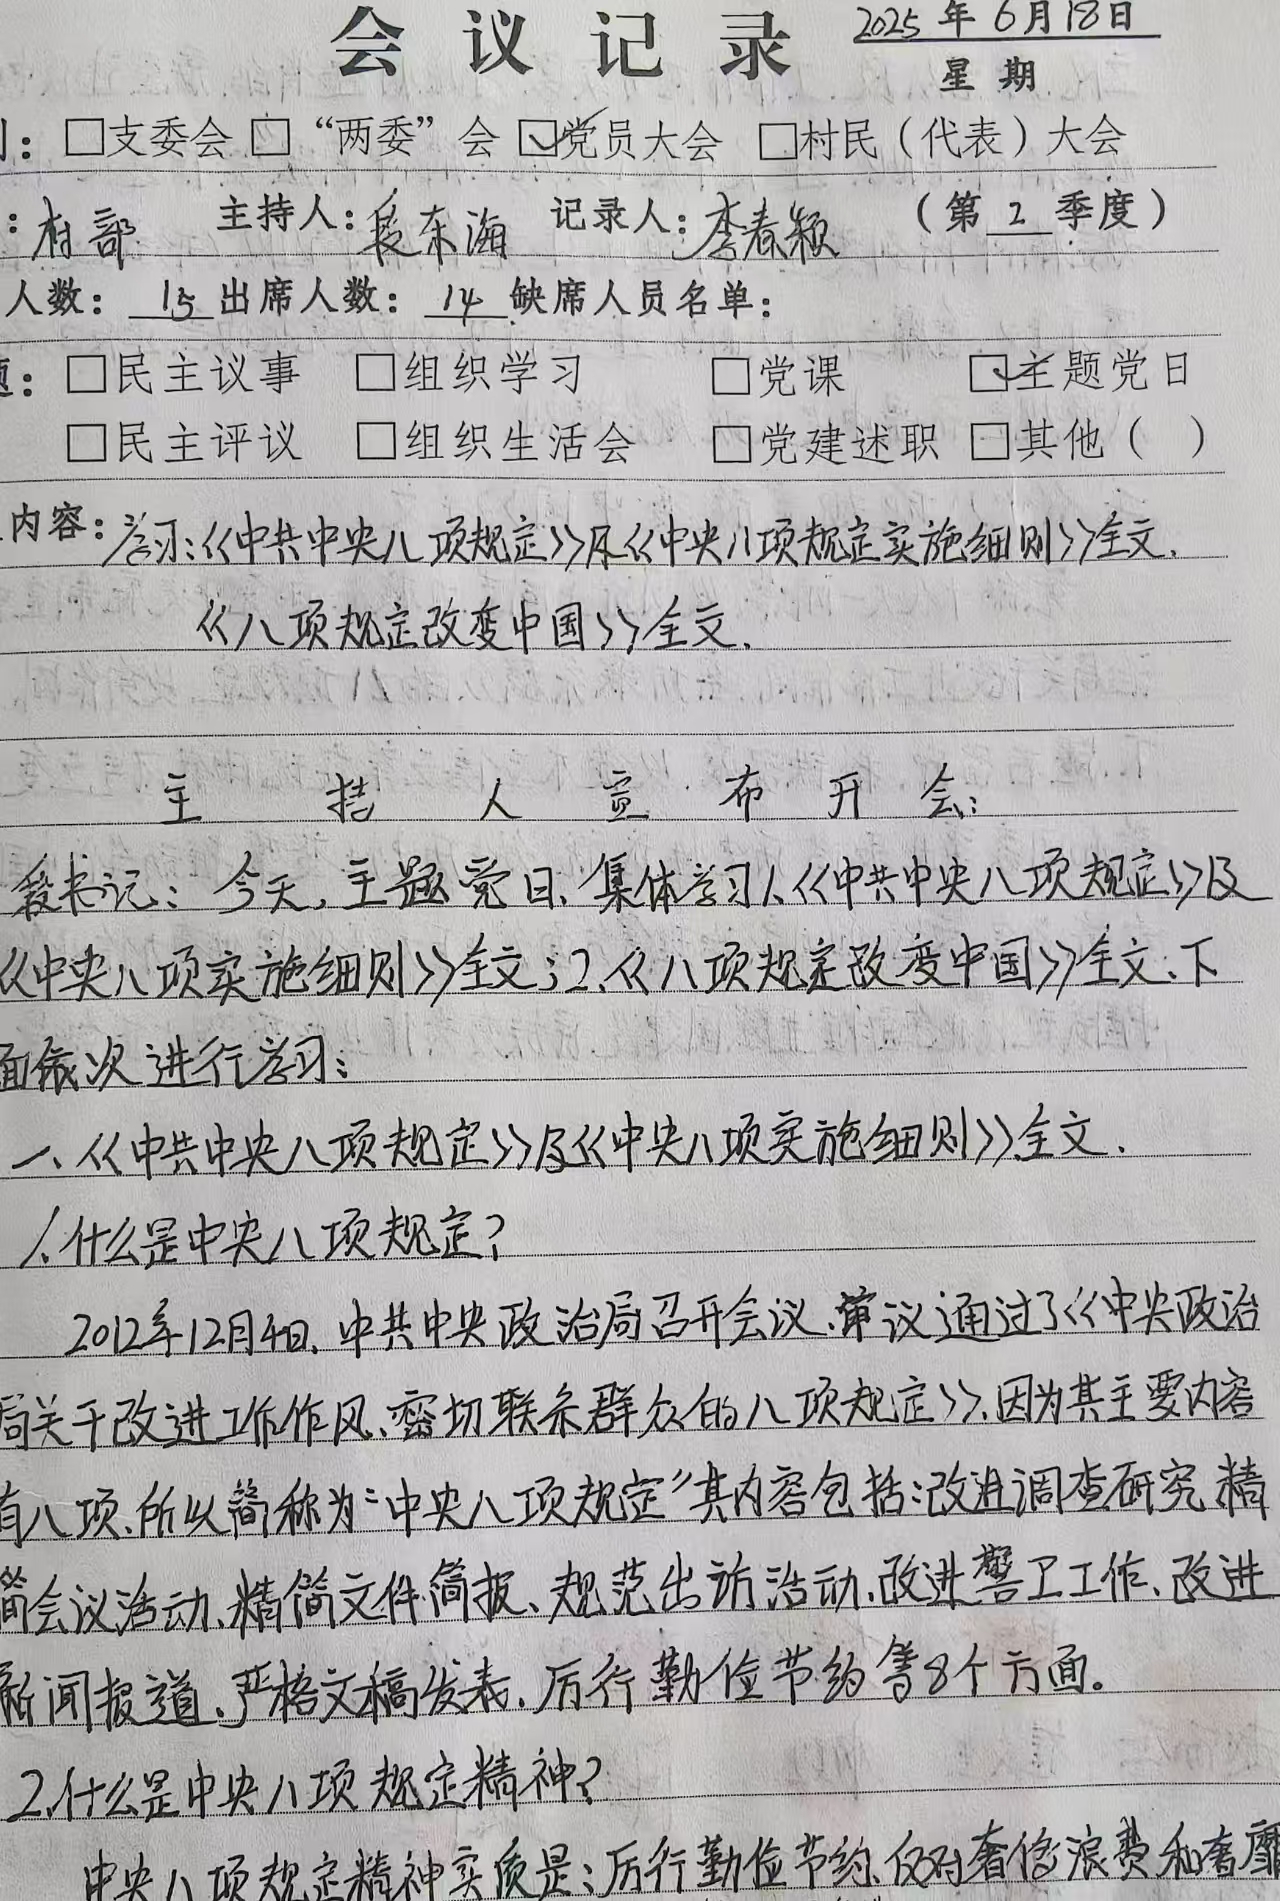 会议记录 2025年6月18日
星期
：□支委会 □“两委”会 ☑党员大会 □村民（代表）大会
：村部 主持人：段东海 记录人：李春颖 （第2季度）
人数：15 出席人数：14 缺席人员名单：
题：□民主议事 □组织学习 □党课 ☑主题党日
□民主评议 □组织生活会 □党建述职 □其他（ ）
内容：学习：《中共中央八项规定》及《中央八项规定实施细则》全文、
《八项规定改变中国》全文、
主持人宣布开会：
段书记：今天，主题党日、集体学习1、《中共中央八项规定》及
《中央八项实施细则》全文；2、《八项规定改变中国》全文、下
面依次进行学习：
一、《中共中央八项规定》及《中央八项实施细则》全文、
1、什么是中央八项规定？
2012年12月4日、中共中央政治局召开会议、审议通过了《中央政治
局关于改进工作作风、密切联系群众的八项规定》、因为其主要内容
有八项、所以简称为“中央八项规定”其内容包括：改进调查研究、精
简会议活动、精简文件简报、规范出访活动、改进警卫工作、改进
新闻报道、严格文稿发表、厉行勤俭节约等8个方面。
2、什么是中央八项规定精神？
中央八项规定精神实质是：厉行勤俭节约、反对奢侈浪费和奢靡